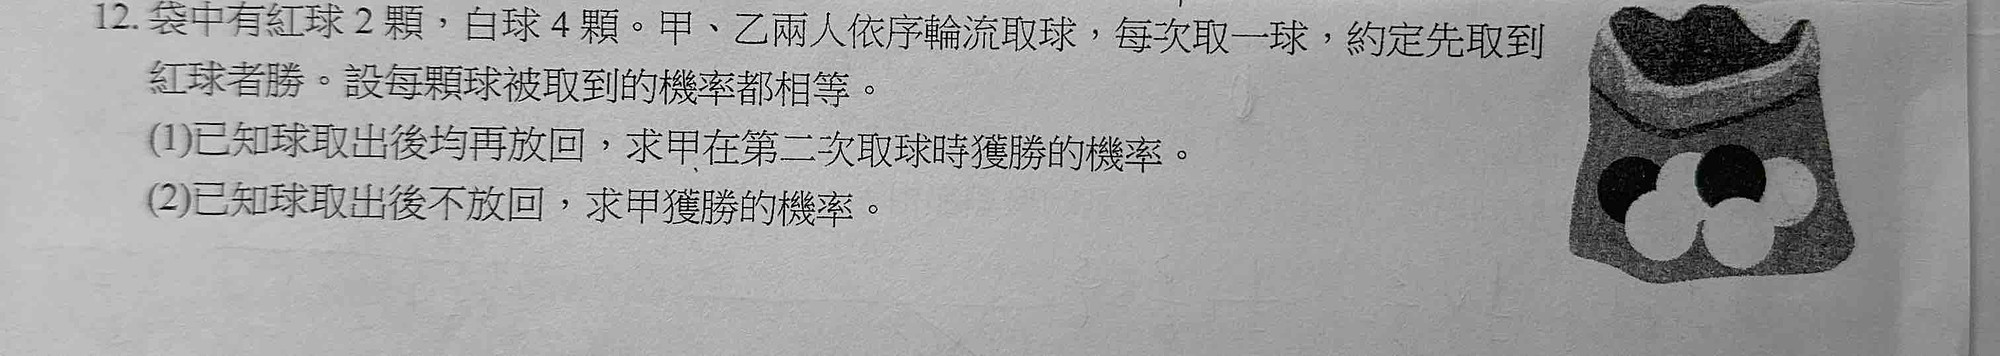 12. 袋中有紅球 2 顆，白球 4 顆。甲、乙兩人依序輪流取球，每次取一球，約定先取到
紅球者勝。設每顆球被取到的機率都相等。
(1)已知球取出後均再放回，求甲在第二次取球時獲勝的機率。
(2)已知球取出後不放回，求甲獲勝的機率。